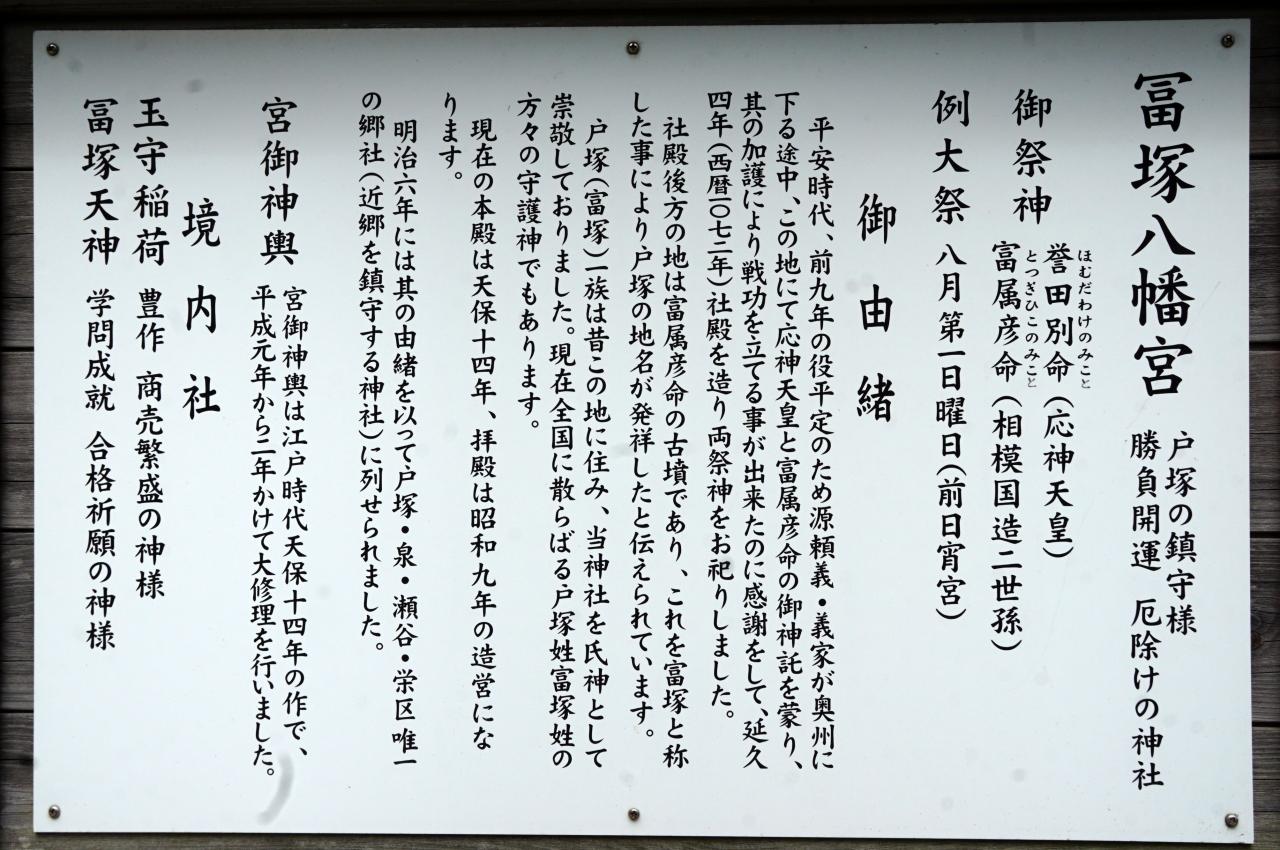 冨塚八幡宮
戸塚の鎮守様
勝負開運 厄除けの神社
御祭神
ほむだわけのみこと
誉田別命(応神天皇)
とつぎひこのみこと
富属彦命(相模国造二世孫)
例大祭 八月第一日曜日(前日宵宮)
御由緒
平安時代、前九年の役平定のため源頼義・義家が奥州に
下る途中、この地にて応神天皇と富属彦命の御神託を蒙り、
其の加護により戦功を立てる事が出来たのに感謝をして、延久
四年(西暦一〇七二年)社殿を造り両祭神をお祀りしました。
社殿後方の地は富属彦命の古墳であり、これを富塚と称
した事により戸塚の地名が発祥したと伝えられています。
戸塚(富塚)一族は昔この地に住み、当神社を氏神として
崇敬しておりました。現在全国に散らばる戸塚姓富塚姓の
方々の守護神でもあります。
現在の本殿は天保十四年、拝殿は昭和九年の造営にな
ります。
明治六年には其の由緒を以って戸塚・泉・瀬谷・栄区唯一
の郷社(近郷を鎮守する神社)に列せられました。
宮御神輿
宮御神輿は江戸時代天保十四年の作で、
平成元年から二年かけて大修理を行いました。
境内社
玉守稲荷 豊作 商売繁盛の神様
冨塚天神 学問成就 合格祈願の神様